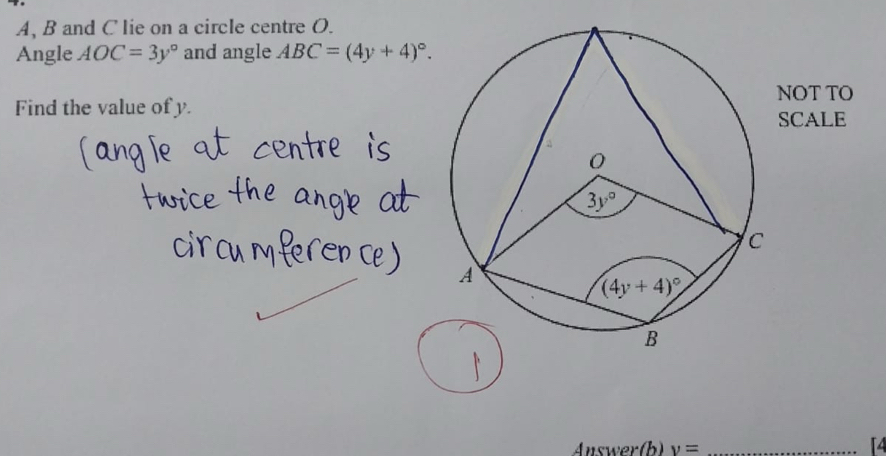 A, B and C lie on a circle centre O.
Angle AOC = 3y° and angle ABC = (4y + 4)°.
Find the value of y.
(angle at centre is
twice the angle at
circumference)
NOT TO
SCALE
O
3y°
C
A
(4y + 4)°
B
1
Answer(b) y = .............................. [4